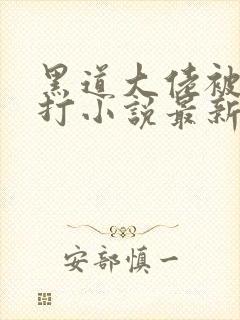 黑道大佬被
打小說最新
安部慎一